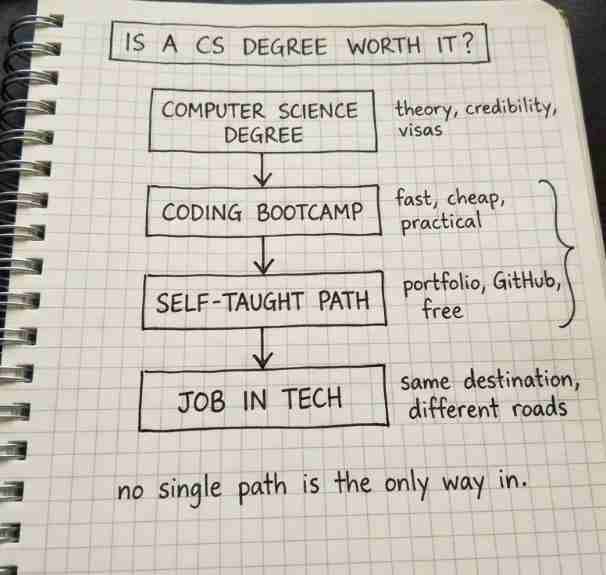 IS A CS DEGREE WORTH IT?
COMPUTER SCIENCE
DEGREE
theory, credibility,
visas
CODING BOOTCAMP
fast, cheap,
practical
SELF-TAUGHT PATH
portfolio, GitHub,
free
JOB IN TECH
same destination,
different roads
no single path is the only way in.